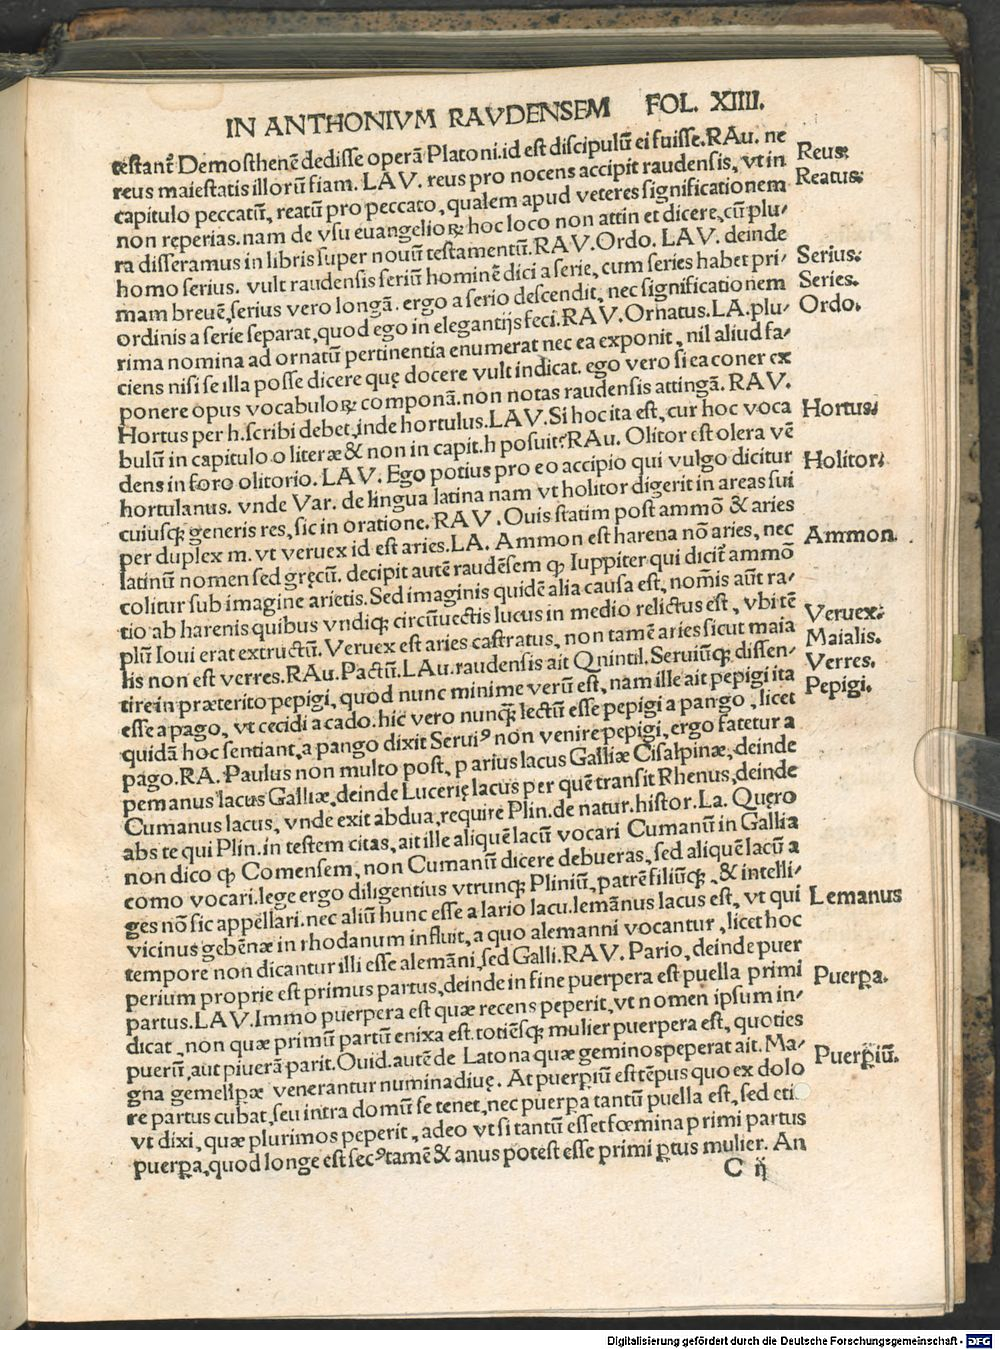 IN ANTHONIVM RAVDENSEM FOL. XIIII.
testant᷑ Demosthenē dedisse operā Platoni.id est discipulū ei fuisse.RAu. ne
reus maiestatis illorū fiam. LAV. reus pro nocens accipit raudensis, vt in
capitulo peccatū, reatū pro peccato, qualem apud veteres significationem
non reperias.nam de vsu euangelioꝝ hoc loco non attin et dicere,cū plu/
ra disseramus in libris super nouū testamentū.RAV.Ordo. LAV. deinde
homo serius. vult raudensis seriū hominē dici a serie, cum series habet pri/
mam breuē,serius vero longā. ergo a serio descendit, nec significationem
ordinis a serie separat,quod ego in elegantijs feci.RAV.Ornatus.LA.plu/
rima nomina ad ornatū pertinentia enumerat nec ea exponit, nil aliud fa/
ciens nisi se illa posse dicere quę docere vult indicat. ego vero si ea coner ex
ponere opus vocabuloꝝ componā.non notas raudensis attingā. RAV.
Hortus per h.scribi debet,inde hortulus.LAV.Si hoc ita est, cur hoc voca
bulū in capitulo o literæ & non in capit.h posuit?RAu. Olitor est olera vē
dens in foro olitorio. LAV. Ego potius pro eo accipio qui vulgo dicitur
hortulanus. vnde Var. de lingua latina nam vt holitor digerit in areas sui
cuiusqꝫ generis res, sic in oratione. RAV. Ouis statim post ammō & aries
per duplex m. vt veruex id est aries.LA. Ammon est harena nō aries, nec
latinū nomen sed gręcū. decipit autē raudēsem ꝙ Iuppiter qui dicit᷑ ammō
colitur sub imagine arietis. Sed imaginis quidē alia causa est, nom̄is aūt ra/
tio ab harenis quibus vndiqꝫ circūuectis lucus in medio relictus est, vbi tē
plū Ioui erat extructū. Veruex est aries castratus, non tamē aries sicut maia
lis non est verres.RAu. Pactū.LAu.raudensis ait Qnintil. Seruiūqꝫ dissen/
tire in præterito pepigi, quod nunc minime verū est, nam ille ait pepigi ita
esse a pago, vt cecidi a cado.hic vero nunqꝫ̄ lectū esse pepigi a pango, licet
quidā hoc sentiant,a pango dixit Seruiꝰ non venire pepigi, ergo fatetur a
pago.RA. Paulus non multo post, p arius lacus Galliæ Cisalpinæ, deinde
pemanus lacus Galliæ,deinde Lucerię lacus per quē transit Rhenus,deinde
Cumanus lacus, vnde exit abdua,require Plin.de natur.histor.La. Quęro
abs te qui Plin.in testem citas, ait ille aliquē lacū vocari Cumanū in Gallia
non dico ꝙ Comensem, non Cumanū dicere debueras, sed aliquē lacū a
como vocari.lege ergo diligentius vtrunqꝫ Pliniū, patrē filiūqꝫ, & intelli/
ges nō sic appellari.nec aliū hunc esse a lario lacu.lemānus lacus est, vt qui
vicinus gebēnæ in rhodanum influit, a quo alemanni vocantur, licet hoc
tempore non dicantur illi esse alemāni, sed Galli.RAV. Pario, deinde puer
perium proprie est primus partus,deinde in fine puerpera est puella primi
partus.LAV.Immo puerpera est quæ recens peperit,vt nomen ipsum in/
dicat, non quæ primū partū enixa est.totiēsqꝫ mulier puerpera est, quoties
puerū,aut piuerā parit.Ouid.autē de Latona quæ geminos peperat ait. Ma/
gna gemelliꝑæ venerantur numina diuę. At puerꝑiū est tēpus quo ex dolo
re partus cubat,seu intra domū se tenet,nec puerꝑa tantū puella est, sed eti
vt dixi, quæ plurimos peperit, adeo vt si tantū esset fœmina primi partus
puerꝑa,quod longe est secꝰ tamē & anus potest esse primi ꝑtus mulier. An
C ij
Reus.
Reatus.
Serius.
Series.
Ordo.
Hortus.
Holitor.
Ammon.
Veruex.
Maialis.
Verres.
Pepigi.
Lemanus
Puerꝑa.
Puerꝑiū.
Digitalisierung gefördert durch die Deutsche Forschungsgemeinschaft - DFG